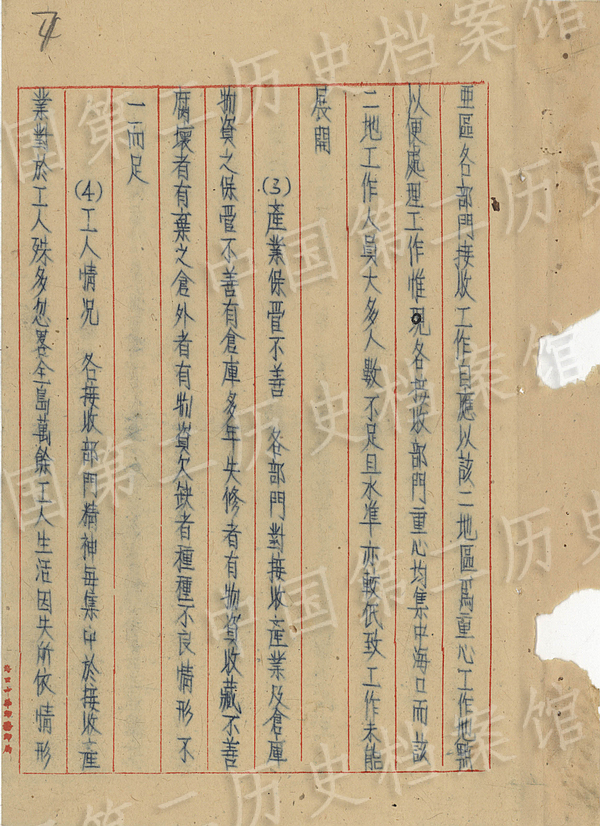 亜區各部門接收工作自應以該二地區爲重心工作地點
以便處理工作惟現各接收部門重心均集中海口而該
二地工作人員大多人數不足且水準亦較低致工作未能
展開
(3)產業保管不善 各部門對接收產業及倉庫
物資之保管不善有倉庫多年失修者有物資收藏不善
腐壞者有棄之倉外者有物資欠缺者種種不良情形不
一而足
(4)工人情况 各接收部門精神每集中於接收產
業對於工人殊多忽畧全島萬餘工人生活因失所依情形
中国第二历史档案馆